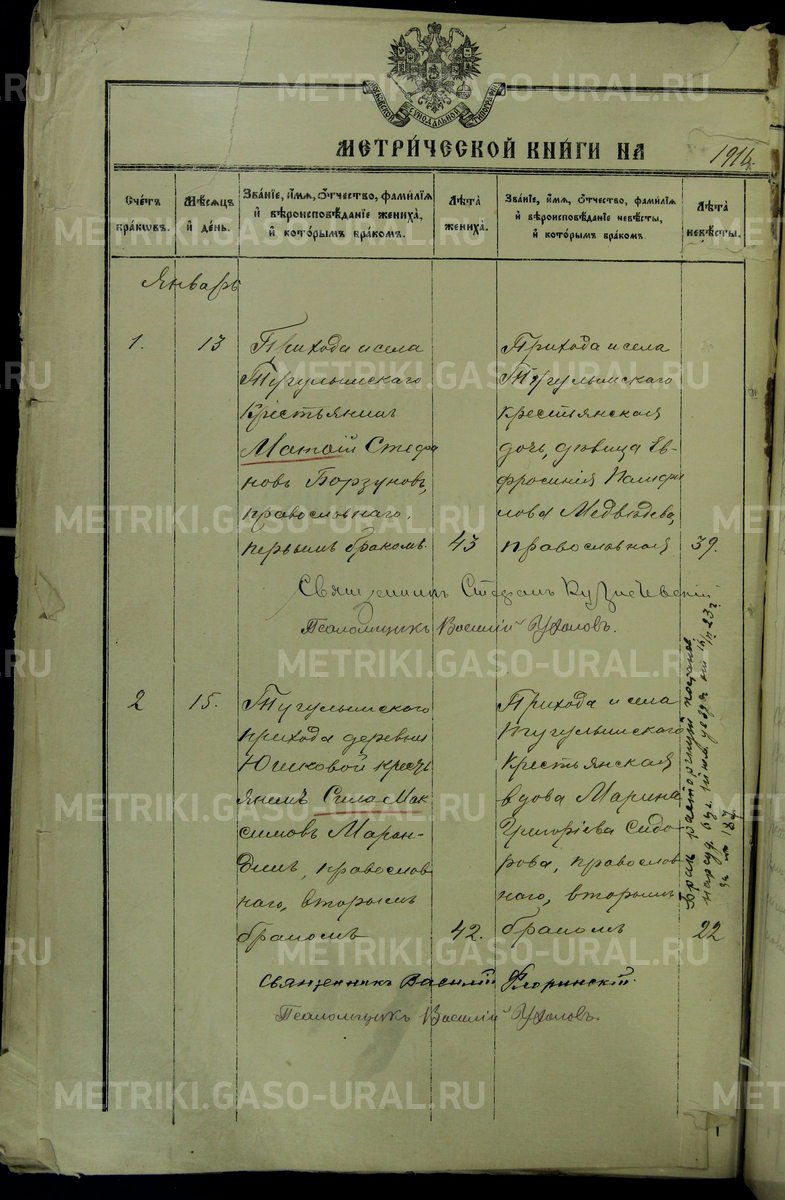 МЕТРИ́ЧЕСКОЙ КНИ́ГИ НА 1914.
Сче́тъ бра́ковъ.
Мѣ́сяцъ и҆ де́нь.
Зва́нїе, и҆́мѧ, ѻ҆́тчество, фами́лїѧ и҆ вѣроисповѣ́данїе жениха̀, и҆ кото́рымъ бра́комъ.
Лѣ́та жениха̀.
Зва́нїе, и҆́мѧ, ѻ҆́тчество, фами́лїѧ и҆ вѣроисповѣ́данїе невѣ́сты, и҆ кото́рымъ бра́комъ.
Лѣ́та невѣ́сты.
Январь
1.
13
Прихода и села
Тугулымскаго
крестьянинъ
Матѳій Стефа
новъ Борзуновъ,
православнаго,
первымъ бракомъ.
43
Прихода и села
Тугулымскаго
крестьянская
дочь, дѣвица Ев-
фросинія Памфи
лова Медвѣдева,
православная
39.
Священникъ Стефанъ
Псаломщикъ Василій
2
15.
Тугулымскаго
прихода деревни
Юшковой кресть
янинъ Сила Мак
симовъ Маран-
динъ, православ
наго, вторымъ
бракомъ
42.
Прихода и села
Тугулымскаго
крестьянская
вдова Марина
Григоріева Сидо
рова, православ
наго, вторымъ
бракомъ
22
Бракъ расторгнут
187
Священникъ Василій Флоринскій.
Псаломщикъ Василій
METRIKI.GASO-URAL.RU